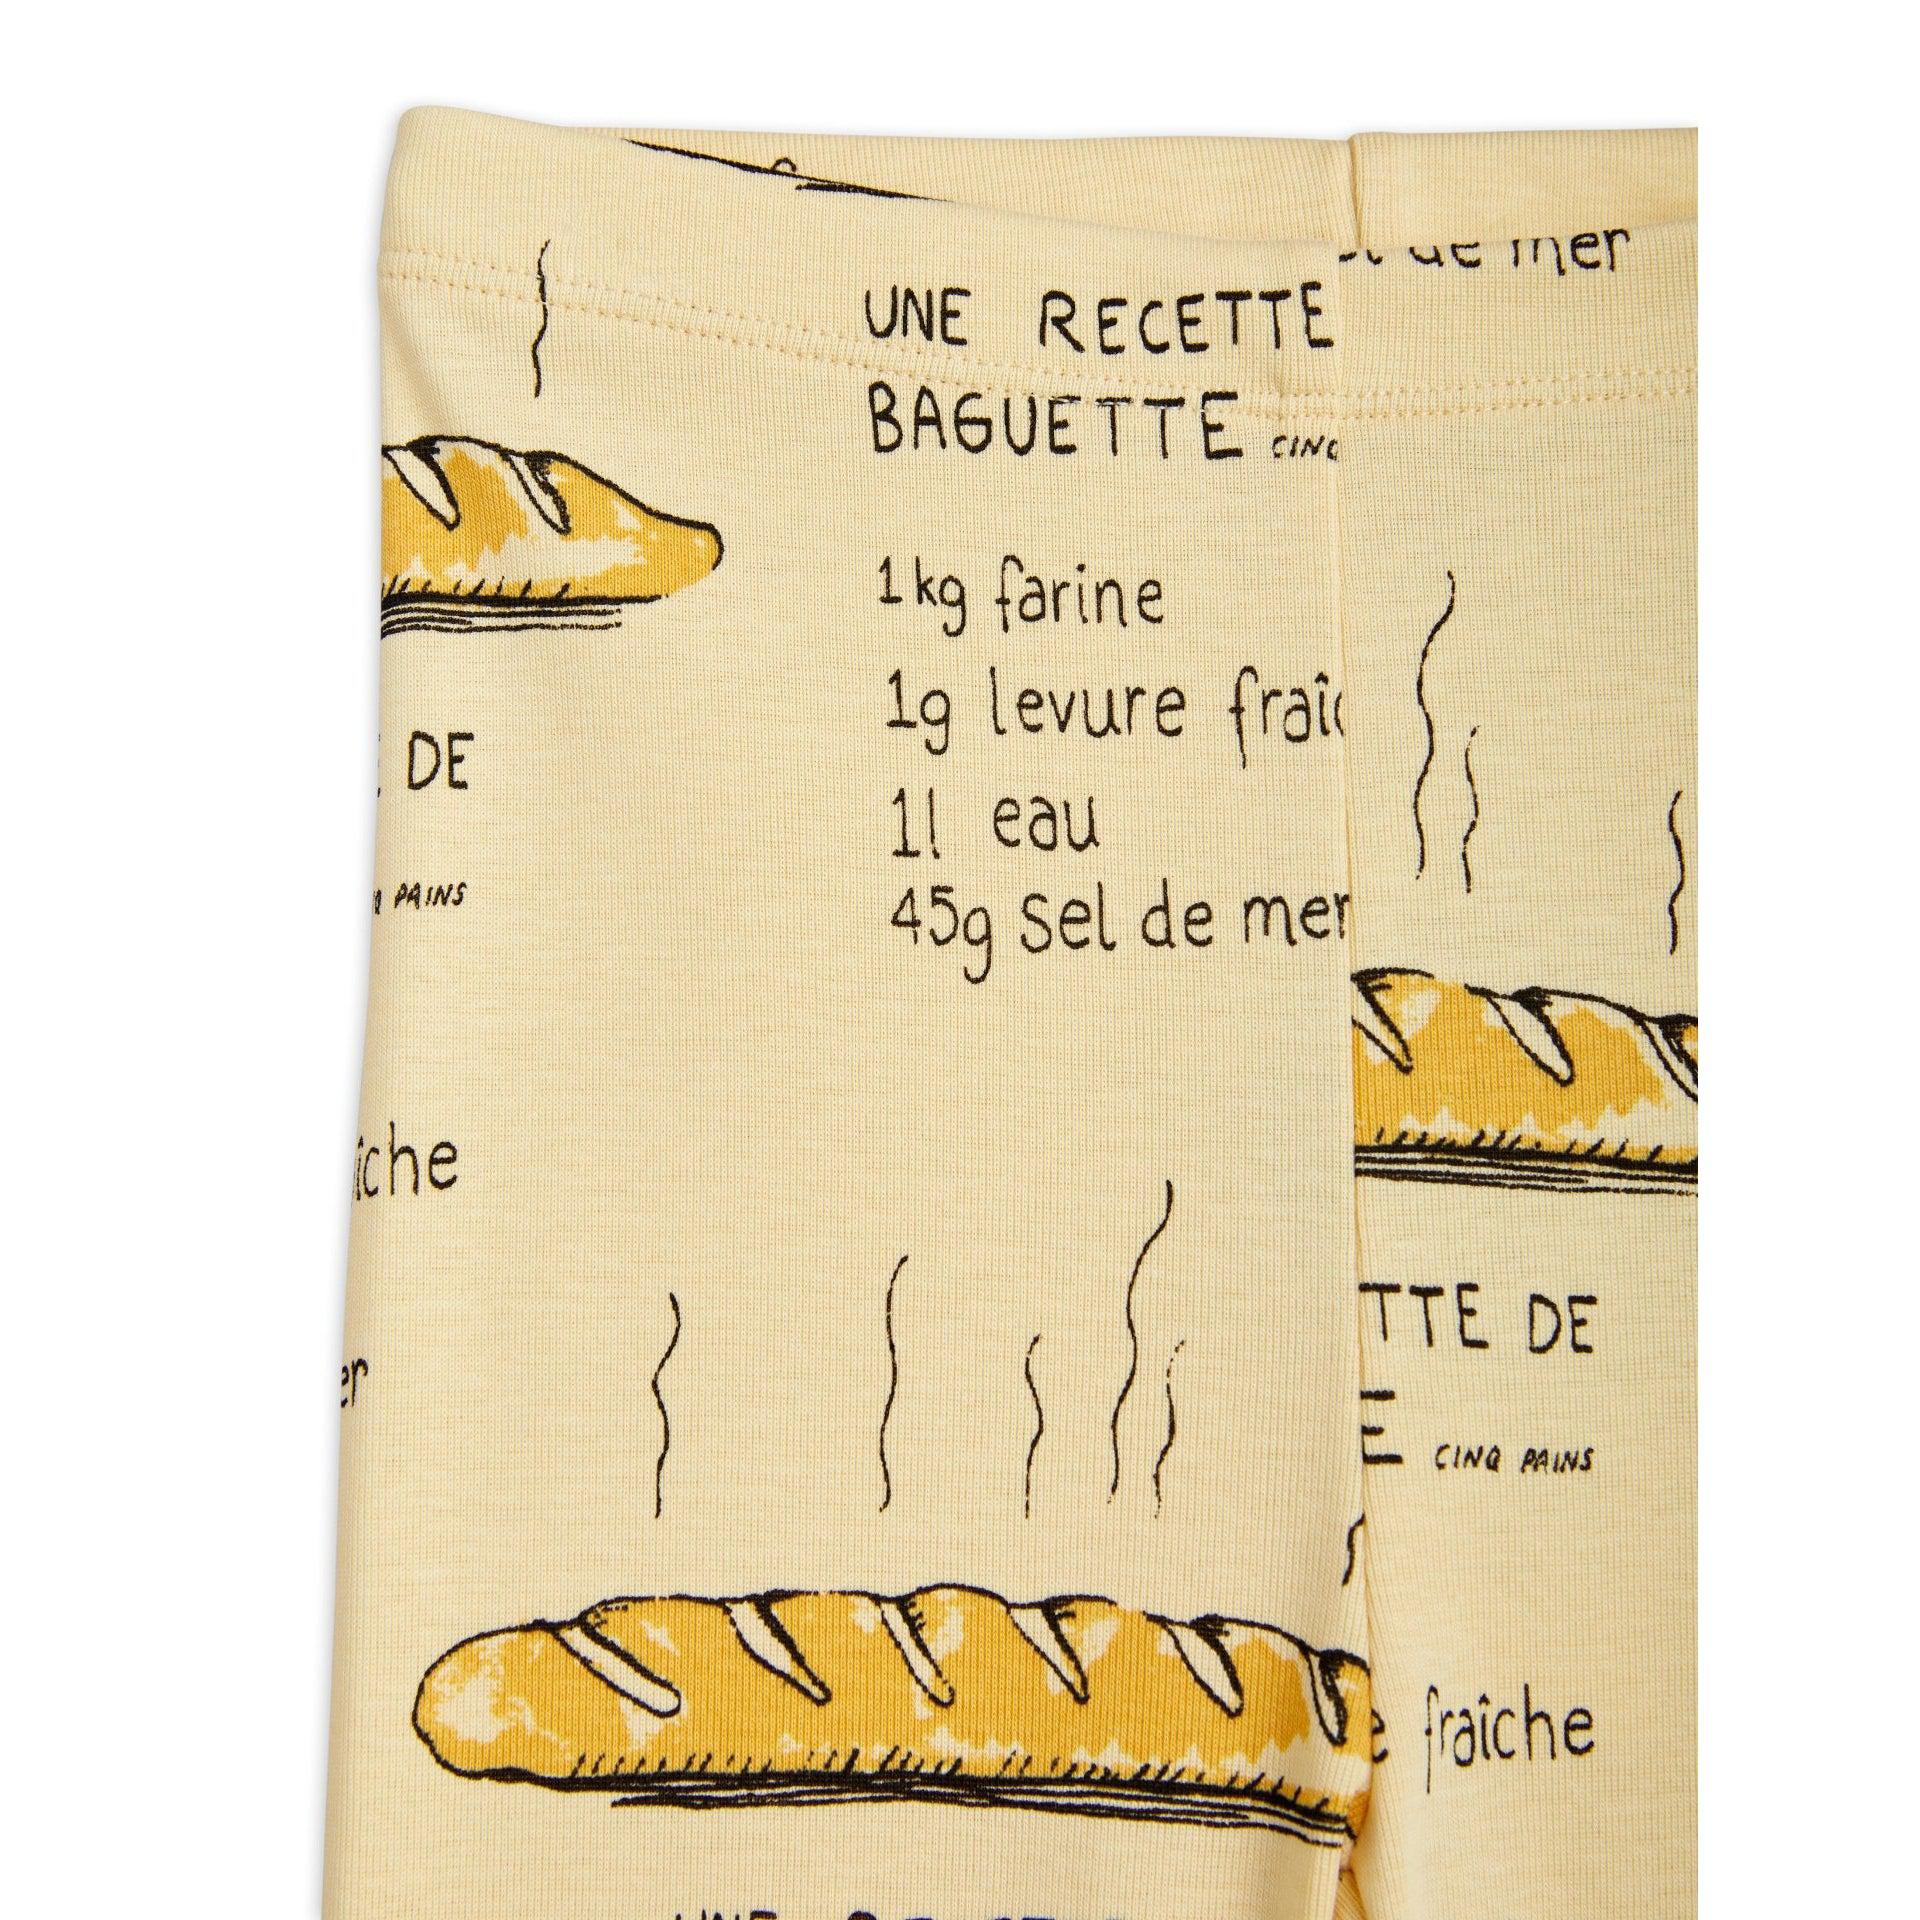 de mer
UNE RECETTE
BAGUETTE CINQ
1kg farine
1g levure fraîc
1l eau
45g sel de mer
DE
PAINS
îche
er
TTE DE
E CINQ PAINS
e fraîche
UNE